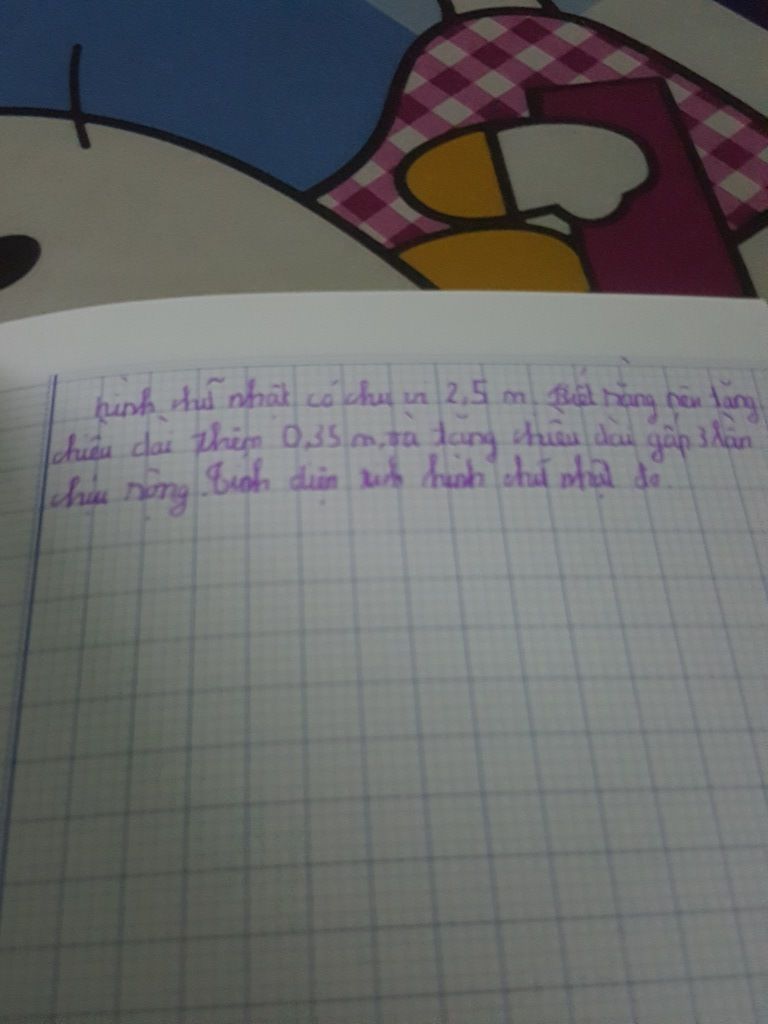 hình chữ nhật có chu vi 2,5 m. Biết rằng nếu tăng
chiều dài thêm 0,35 m, và tăng chiều dài gấp 3 lần
chiều rộng. Tính diện tích hình chữ nhật đó.